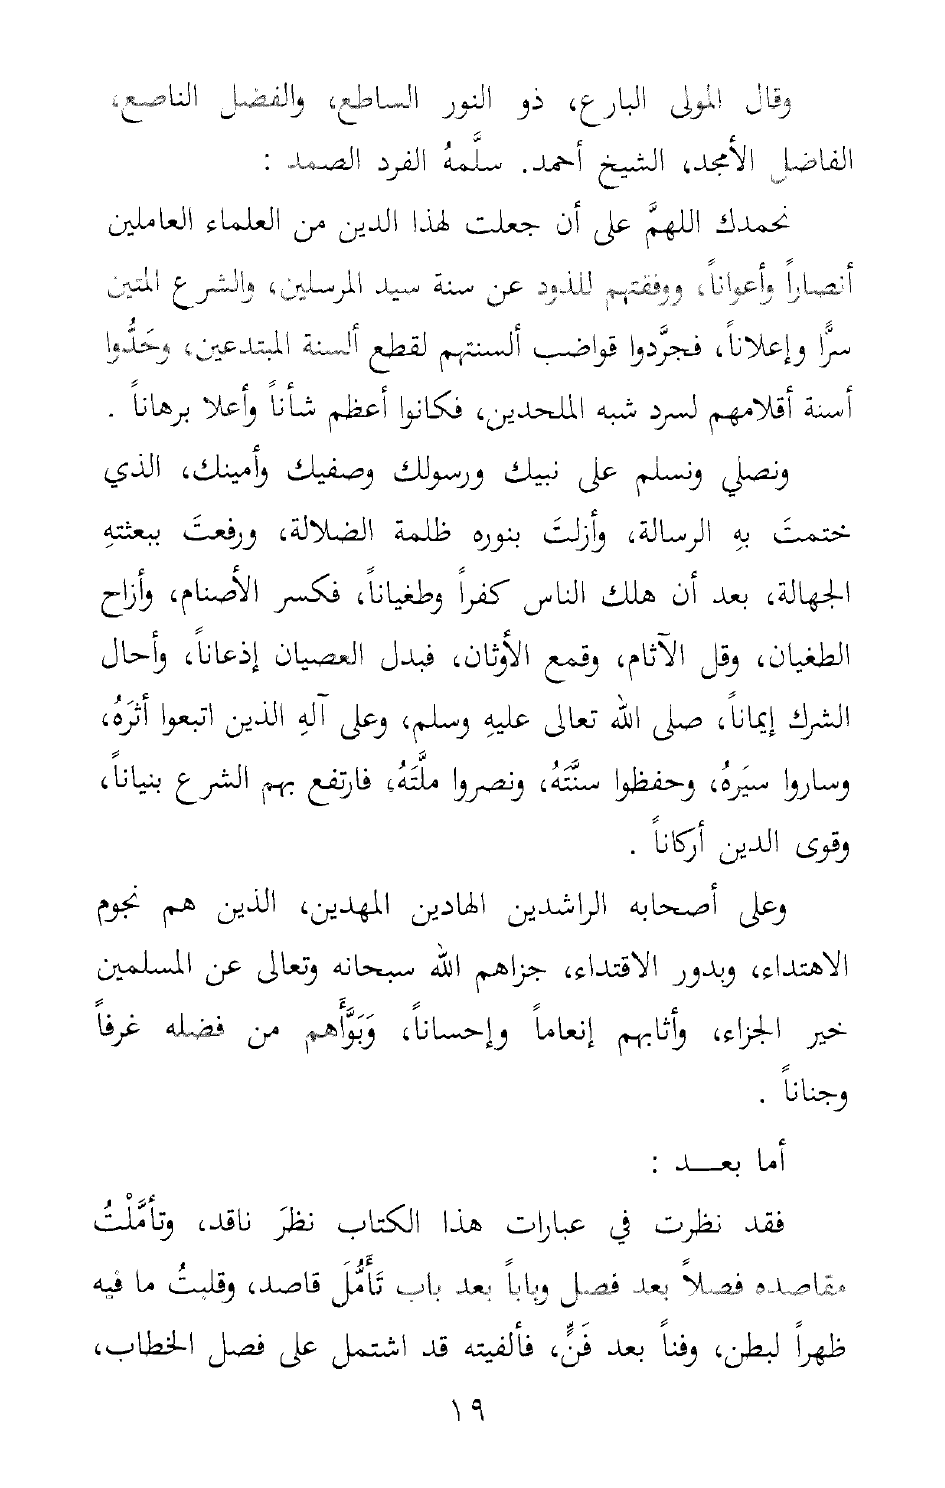 وقال المولى البارع، ذو النور الساطع، والفضل الناصع،
الفاضل الأمجد، الشيخ أحمد. سلَّمهُ الفرد الصمد :
نحمدك اللهمَّ على أن جعلت لهذا الدين من العلماء العاملين
أنصاراً وأعواناً، ووفقتهم للذود عن سنة سيد المرسلين، والشرع المتين
سرًّا وإعلاناً، فجرَّدوا قواضب ألسنتهم لقطع ألسنة المبتدعين، وحَدُّوا
أسنة أقلامهم لسرد شبه الملحدين، فكانوا أعظم شأناً وأعلا برهاناً .
ونصلي ونسلم على نبيك ورسولك وصفيك وأمينك، الذي
ختمتَ بهِ الرسالة، وأزلتَ بنوره ظلمة الضلالة، ورفعتَ ببعثتهِ
الجهالة، بعد أن هلك الناس كفراً وطغياناً، فكسر الأصنام، وأزاح
الطغيان، وقل الآثام، وقمع الأوثان، فبدل العصيان إذعاناً، وأحال
الشرك إيماناً، صلى الله تعالى عليهِ وسلم، وعلى آلهِ الذين اتبعوا أثرَهُ،
وساروا سيَرهُ، وحفظوا سنَّتَهُ، ونصروا ملَّتَهُ، فارتفع بهم الشرع بنياناً،
وقوى الدين أركاناً .
وعلى أصحابه الراشدين الهادين المهدين، الذين هم نجوم
الاهتداء، وبدور الاقتداء، جزاهم الله سبحانه وتعالى عن المسلمين
خير الجزاء، وأثابهم إنعاماً وإحساناً، وَبَوَّأَهم من فضله غرفاً
وجناناً .
أما بعـــد :
فقد نظرت في عبارات هذا الكتاب نظرَ ناقد، وتأمَّلْتُ
مقاصده فصلاً بعد فصل وباباً بعد باب تَأَمُّلَ قاصد، وقلبتُ ما فيه
ظهراً لبطن، وفناً بعد فَنٍّ، فألفيته قد اشتمل على فصل الخطاب،
١٩